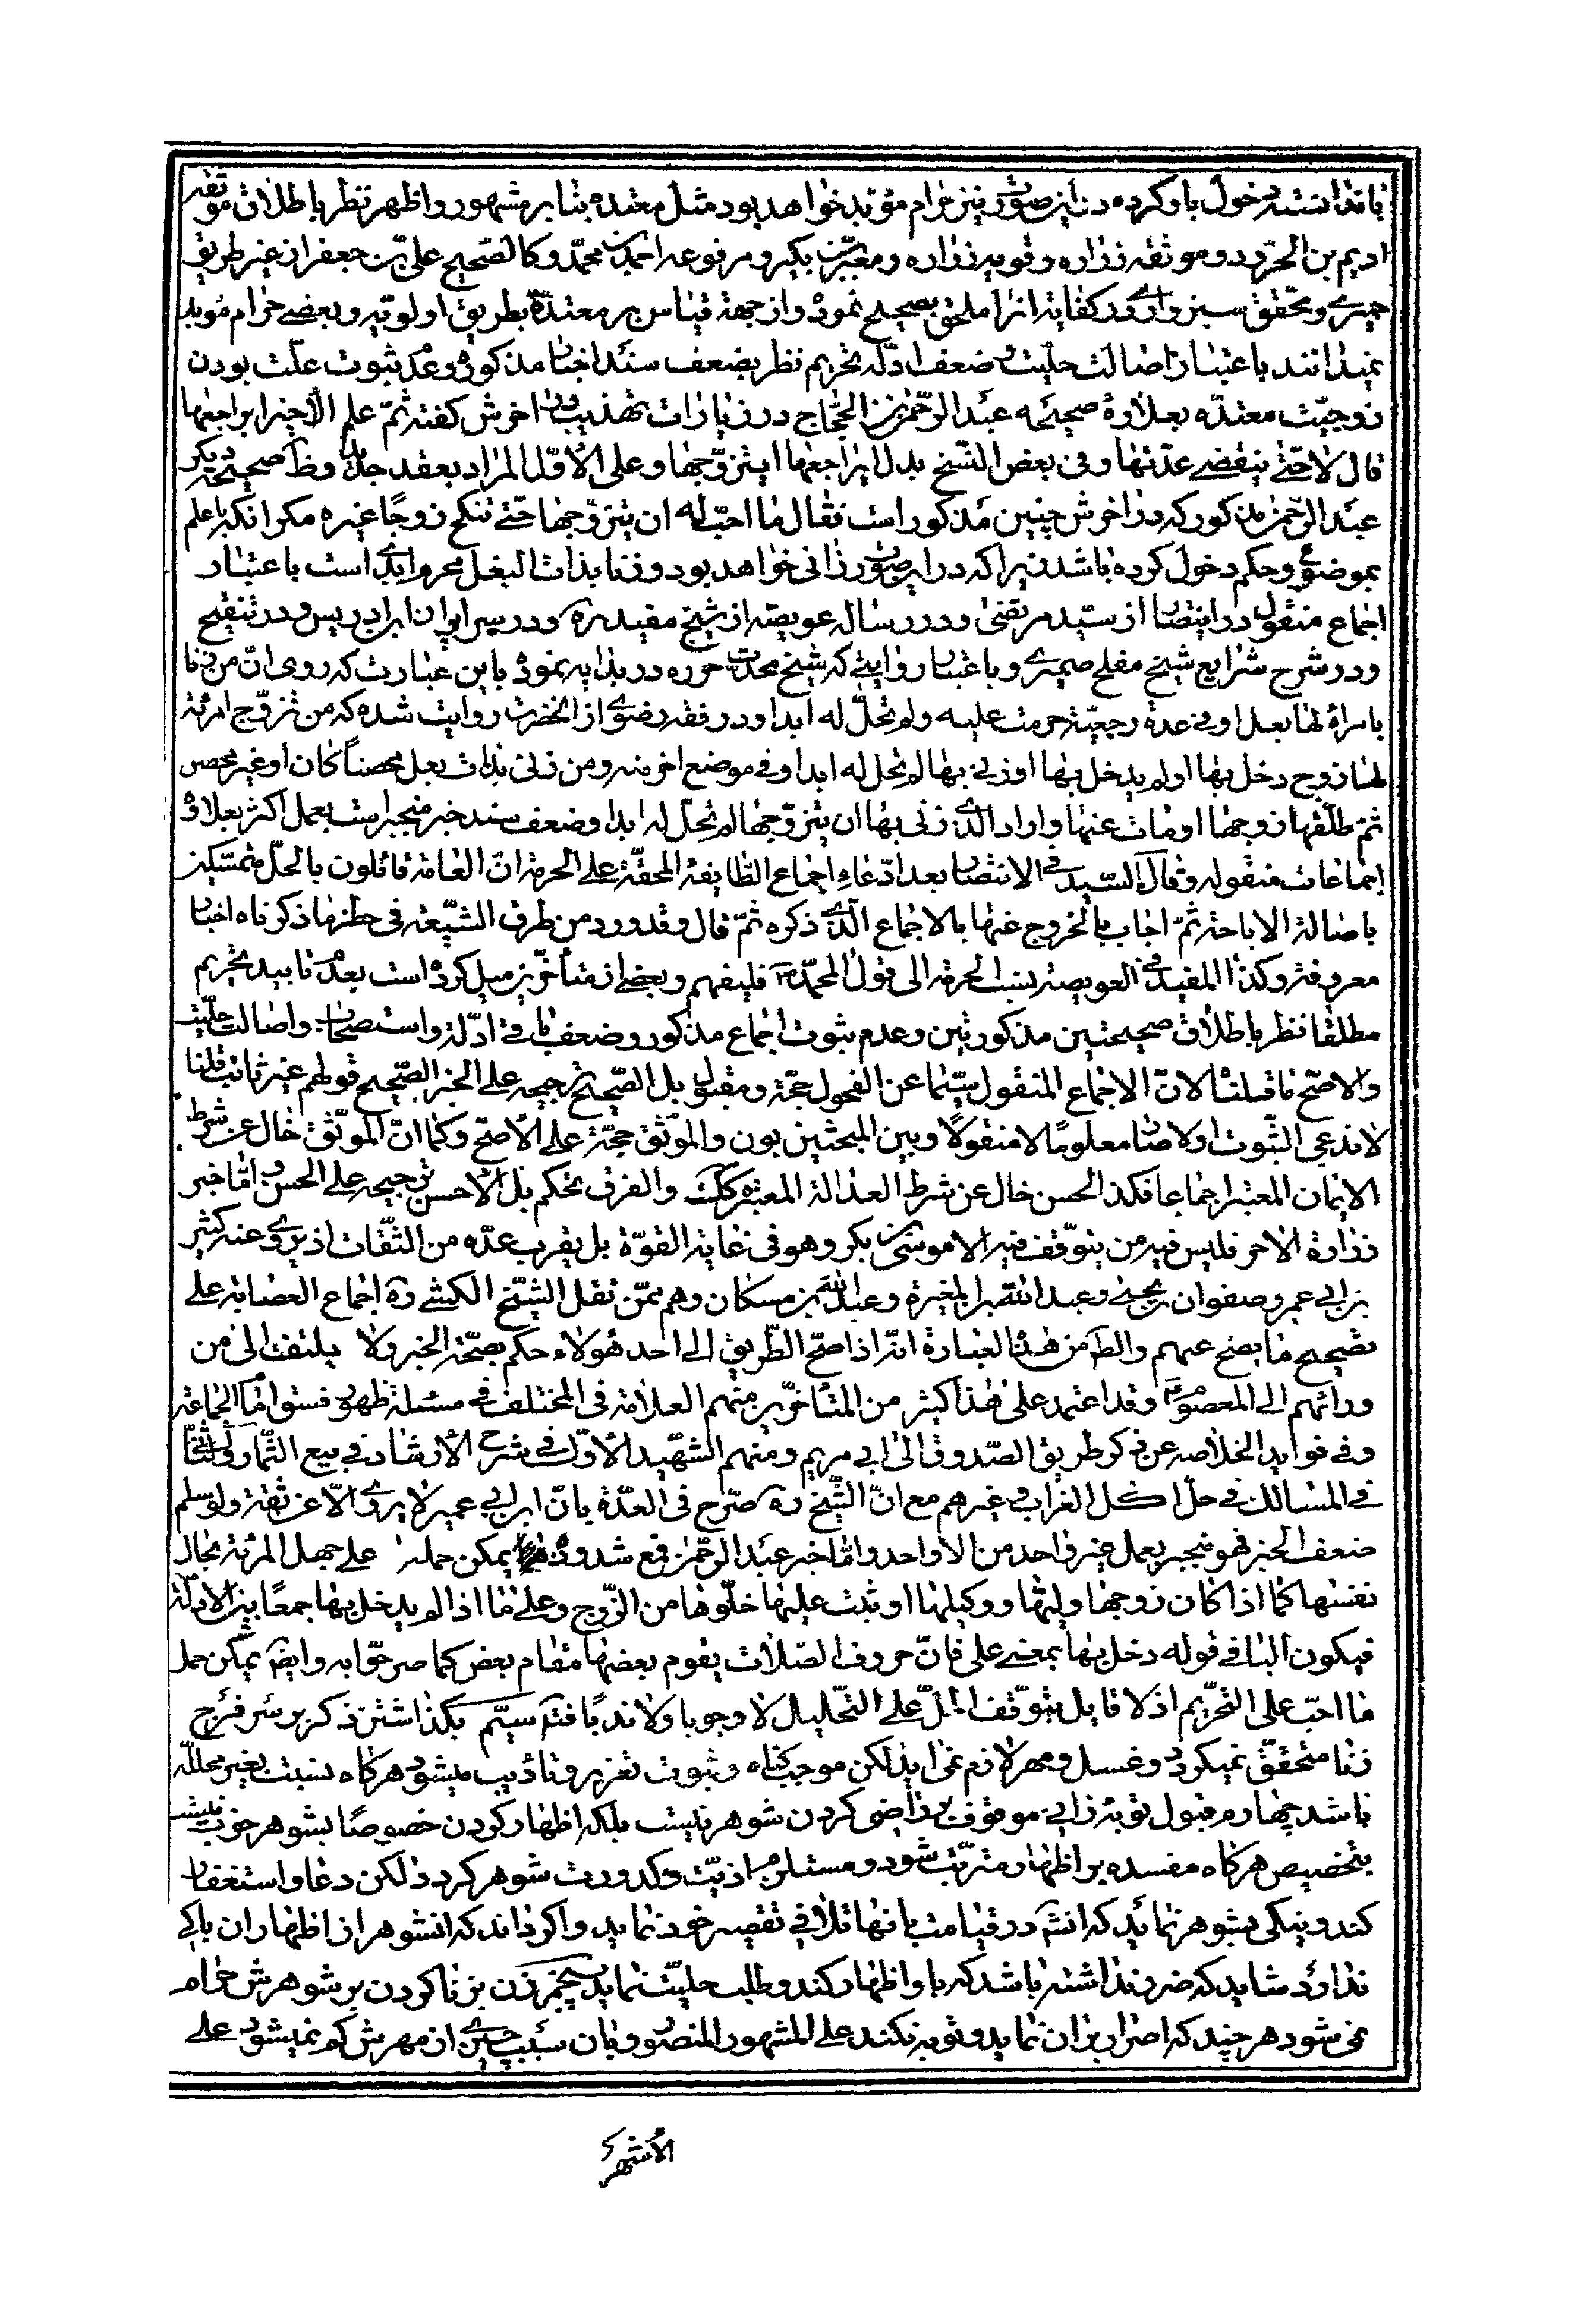 یا ندانسته دخول باو کرده در این صورت نیز حرام مؤبد خواهد بود مثل معتده بنا بر مشهور و اظهر نظر باطلاق موثقه
ادیم بن الحر و در موثقه زراره و قویه زراره و معتبر بن بکیر و مرفوعه احمد بن محمد و کالصحیح علی بن جعفر از غیر طریق
حمیری و محقق سبزواری در کفایة انرا ملحق بصحیح نموده و از جهة قیاس بر معتده بطریق اولویه و بعضی حرام مؤبد
نمیدانند باعتبار اصالت حلیت و ضعف ادله تحریم نظر بضعف سند اخبار مذکوره و عدم ثبوت علت بودن
زوجیت معتده بعلاوۀ صحیحه عبد الرحمن بن الحجاج در زیارات تهذیب در اخرش کفته ثم علم الاخیر ایراجعها
قال لا حتی ینقضی عدتها و فی بعض النسخ بدل ایراجعها ایتزوجها و علی الاول المراد بعقد جدید و ظ صحیحه دیکر
عبد الرحمن مذکور که در اخرش چنین مذکور است فقال ما احب له ان یتزوجها حتی تنکح زوجا غیره مکر انکه با علم
بموضوع و حکم دخول کرده باشد زیرا که در این صورت زانی خواهد بود و زنا بذات البعل محرم ابدی است باعتبار
اجماع منقول در انتصار از سید مرتضی و در رساله عویصه از شیخ مفید ره و در سرایر از ابن ادریس و در تنقیح
و در شرح شرایع شیخ مفلح صیمری و باعتبار روایتی که شیخ محدث حر ره در بدایه نموده باین عبارت که روی ان من زنا
بامراة لها بعل او فی عدة رجعیة حرمت علیه و لم تحل له ابدا و در فقه رضوی از انحضرت روایت شده که من تزوج امرئة
لها زوج دخل بها او لم یدخل بها او زنی بها لم تحل له ابدا و فی موضع اخر منه و من زنی بذات بعل محصنا کان او غیر محصن
ثم طلقها زوجها او مات عنها و اراد الذی زنی بها ان یتزوجها لم تحل له ابدا و ضعف سند خبر منجبر است بعمل اکثر بعلاوۀ
اجماعات منقوله و قال السید فی الانتصار بعد ادعاء اجماع الطایفة المحقة علی الحرمة ان العامة قائلون بالحل متمسکین
باصالة الاباحة ثم اجاب بالخروج عنها بالاجماع الذی ذکره ثم قال و قد ورد من طرق الشیعة فی حظر ما ذکرناه اخبار
معروفة و کذا المفید فی العویصة ینسب الحرمة الی قول المحمد فلیفهم و بعضی از متأخرین میل کرده است بعدم تابید تحریم
مطلقا نظر باطلاق صحیحتین مذکورتین و عدم ثبوت اجماع مذکور و ضعف باقی ادلة و استصحاب و اصالت حلیت
و الاصح ما قلنا لان الاجماع المنقول سیما عن الفحول حجة و مقبول بل الصحیح ترجیحه علی الخبر الصحیح قولهم غیر ثابت قلنا
لا ندعی الثبوت و لا صار معلوما لا منقولا و بین المبحثین بون و الموثق حجة علی الاصح و کما ان الموثق خال عن شرط
الایمان المعتبر اجماعا فکذا الحسن خال عن شرط العدالة المعتبرة کذلک و الفرق تحکم بل الاحسن ترجیحه علی الحسن و اما خبر
زرارة الاخر فلیس فیه من یتوقف فیه الا موسی بن بکر و هو فی غایة القوة بل یقرب عده من الثقات اذ یروی عنه کثیر
بن ابی عمیر و صفوان بن یحیی و عبد الله بن المغیرة و عبد الله بن مسکان و هم ممن نقل الشیخ الکشی ره اجماع العصابة علی
تصحیح ما یصح عنهم و الظ من هذه العبارة انه اذا صح الطریق الی احد هؤلاء حکم بصحة الخبر و لا یلتفت الی من
ورائهم الی المعصوم و قد اعتمد علی هذا کثیر من المتأخرین منهم العلامة فی المختلف فی مسئلة ظهور فسق امام الجماعة
و فی فواید الخلاصه عن ذکر طریق الصدوق الی ابی مریم و منهم الشهید الاول فی شرح الارشاد فی بیع الثمار و الثانی
فی المسالک فی حل اکل الغراب و غیرهم مع ان الشیخ ره صرح فی العدة بان ابن ابی عمیر لا یروی الا عن ثقة و لو سلم
ضعف الخبر فهو منجبر بعمل غیر واحد من الاواحد و اما خبر عبد الرحمن فمع شذوذه یمکن حمله علی جهل المرئة بحال
نفسها کما اذا کان زوجها ولیها و وکیلها او ثبت علیها خلوها من الزوج و علی ما اذا لم یدخل بها جمعا بین الادلة
فیکون البا فی قوله دخل بها بمعنی علی فان حروف الصلات یقوم بعضها مقام بعض کما صرحوا به و ایضا یمکن حمل
ما احب علی التحریم اذ لا قایل بتوقف الحل علی التحلیل لا وجوبا و لا ندبا فتم سیم بکذاشتن ذکر بر سر فرج
زنا متحقق نمیکردد و غسل و مهر لازم نمی اید لکن موجب کناه و ثبوت تعزیر و تادیب میشود هرکاه نسبت بغیر محلله
باشد چهارم قبول توبۀ زانی موقوف بر راضی کردن شوهر نیست بلکه اظهار کردن خصوصا بشوهر خوب نیست
بتخصیص هرکاه مفسده بر اظهار مترتب شود و مستلزم اذیت و کدورت شوهر کردد لکن دعا و استغفار
کند و نیکی بشوهر نماید که انشاء در قیامت بانها تلافی تقصیر خود نماید و اکر داند که انشوهر از اظهار ان باکی
ندارد شاید که ضرر نداشته باشد که باو اظهار کند و طلب حلیت نماید پنجم زن بزنا کردن بر شوهرش حرام
نمی شود هر چند که اصرار بر ان نماید و توبه نکند علی المشهور المنصور و بان سبب چیزی از مهرش کم نمیشود علی
الاشهر